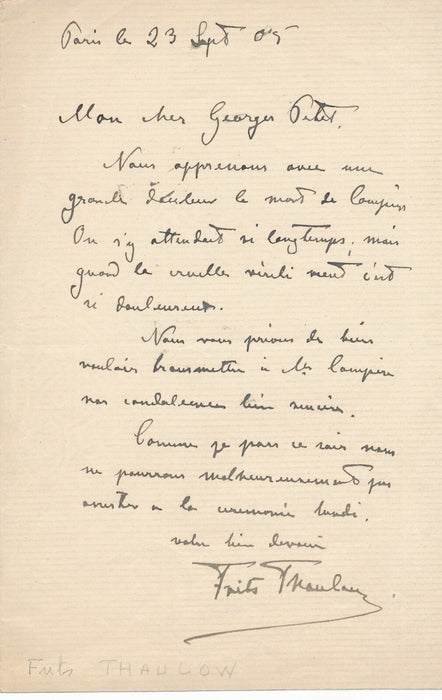 Paris le 23 Sept 05
Mon cher Georges Petit,
Nous apprenons avec une
grande douleur la mort de
On s'y attendait si longtemps, mais
quand la cruelle vient c'est
si douloureux.
Nous vous prions de bien
vouloir transmettre à
nos condoleances bien sincères.
Comme je pars ce soir nous
ne pourrons malheureusement pas
assister a la ceremonie lundi.
votre bien devoué
Frits Thaulow
Frits THAULOW